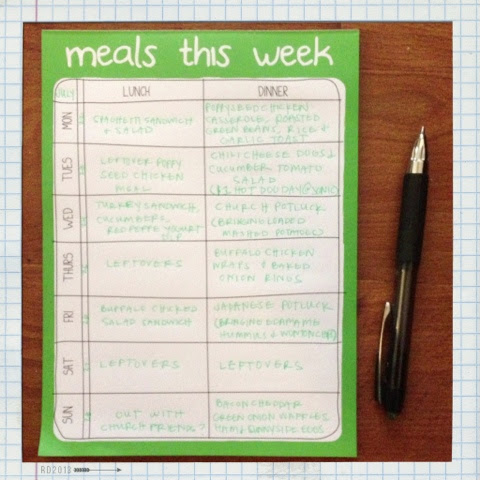 meals this week
LUNCH DINNER
MON
SPAGHETTI SANDWICH
+ SALAD
POPPYSEED CHICKEN
CASSEROLE, ROASTED
GREEN BEANS, RICE +
GARLIC TOAST
TUES
LEFTOVER POPPY
SEED CHICKEN
MEAL
CHILI CHEESE DOGS &
CUCUMBER TOMATO
SALAD
HOT DOG DAY @
WED
TURKEY SANDWICH,
CUCUMBERS,
RED PEPPER YOGURT
DIP
CHURCH POTLUCK
(BRINGING LOADED
MASHED POTATOES)
THURS
LEFTOVERS
BUFFALO CHICKEN
WRAPS & BAKED
ONION RINGS
FRI
BUFFALO CHICKEN
SALAD SANDWICH
JAPANESE POTLUCK
(BRINGING EDAMAME
HUMMUS & WONTON
SAT
LEFTOVERS
LEFTOVERS
SUN
OUT WITH
CHURCH FRIENDS?
BACON CHEDDAR
GREEN ONION WAFFLES
HAM & SUNNYSIDE EGGS
RD2013